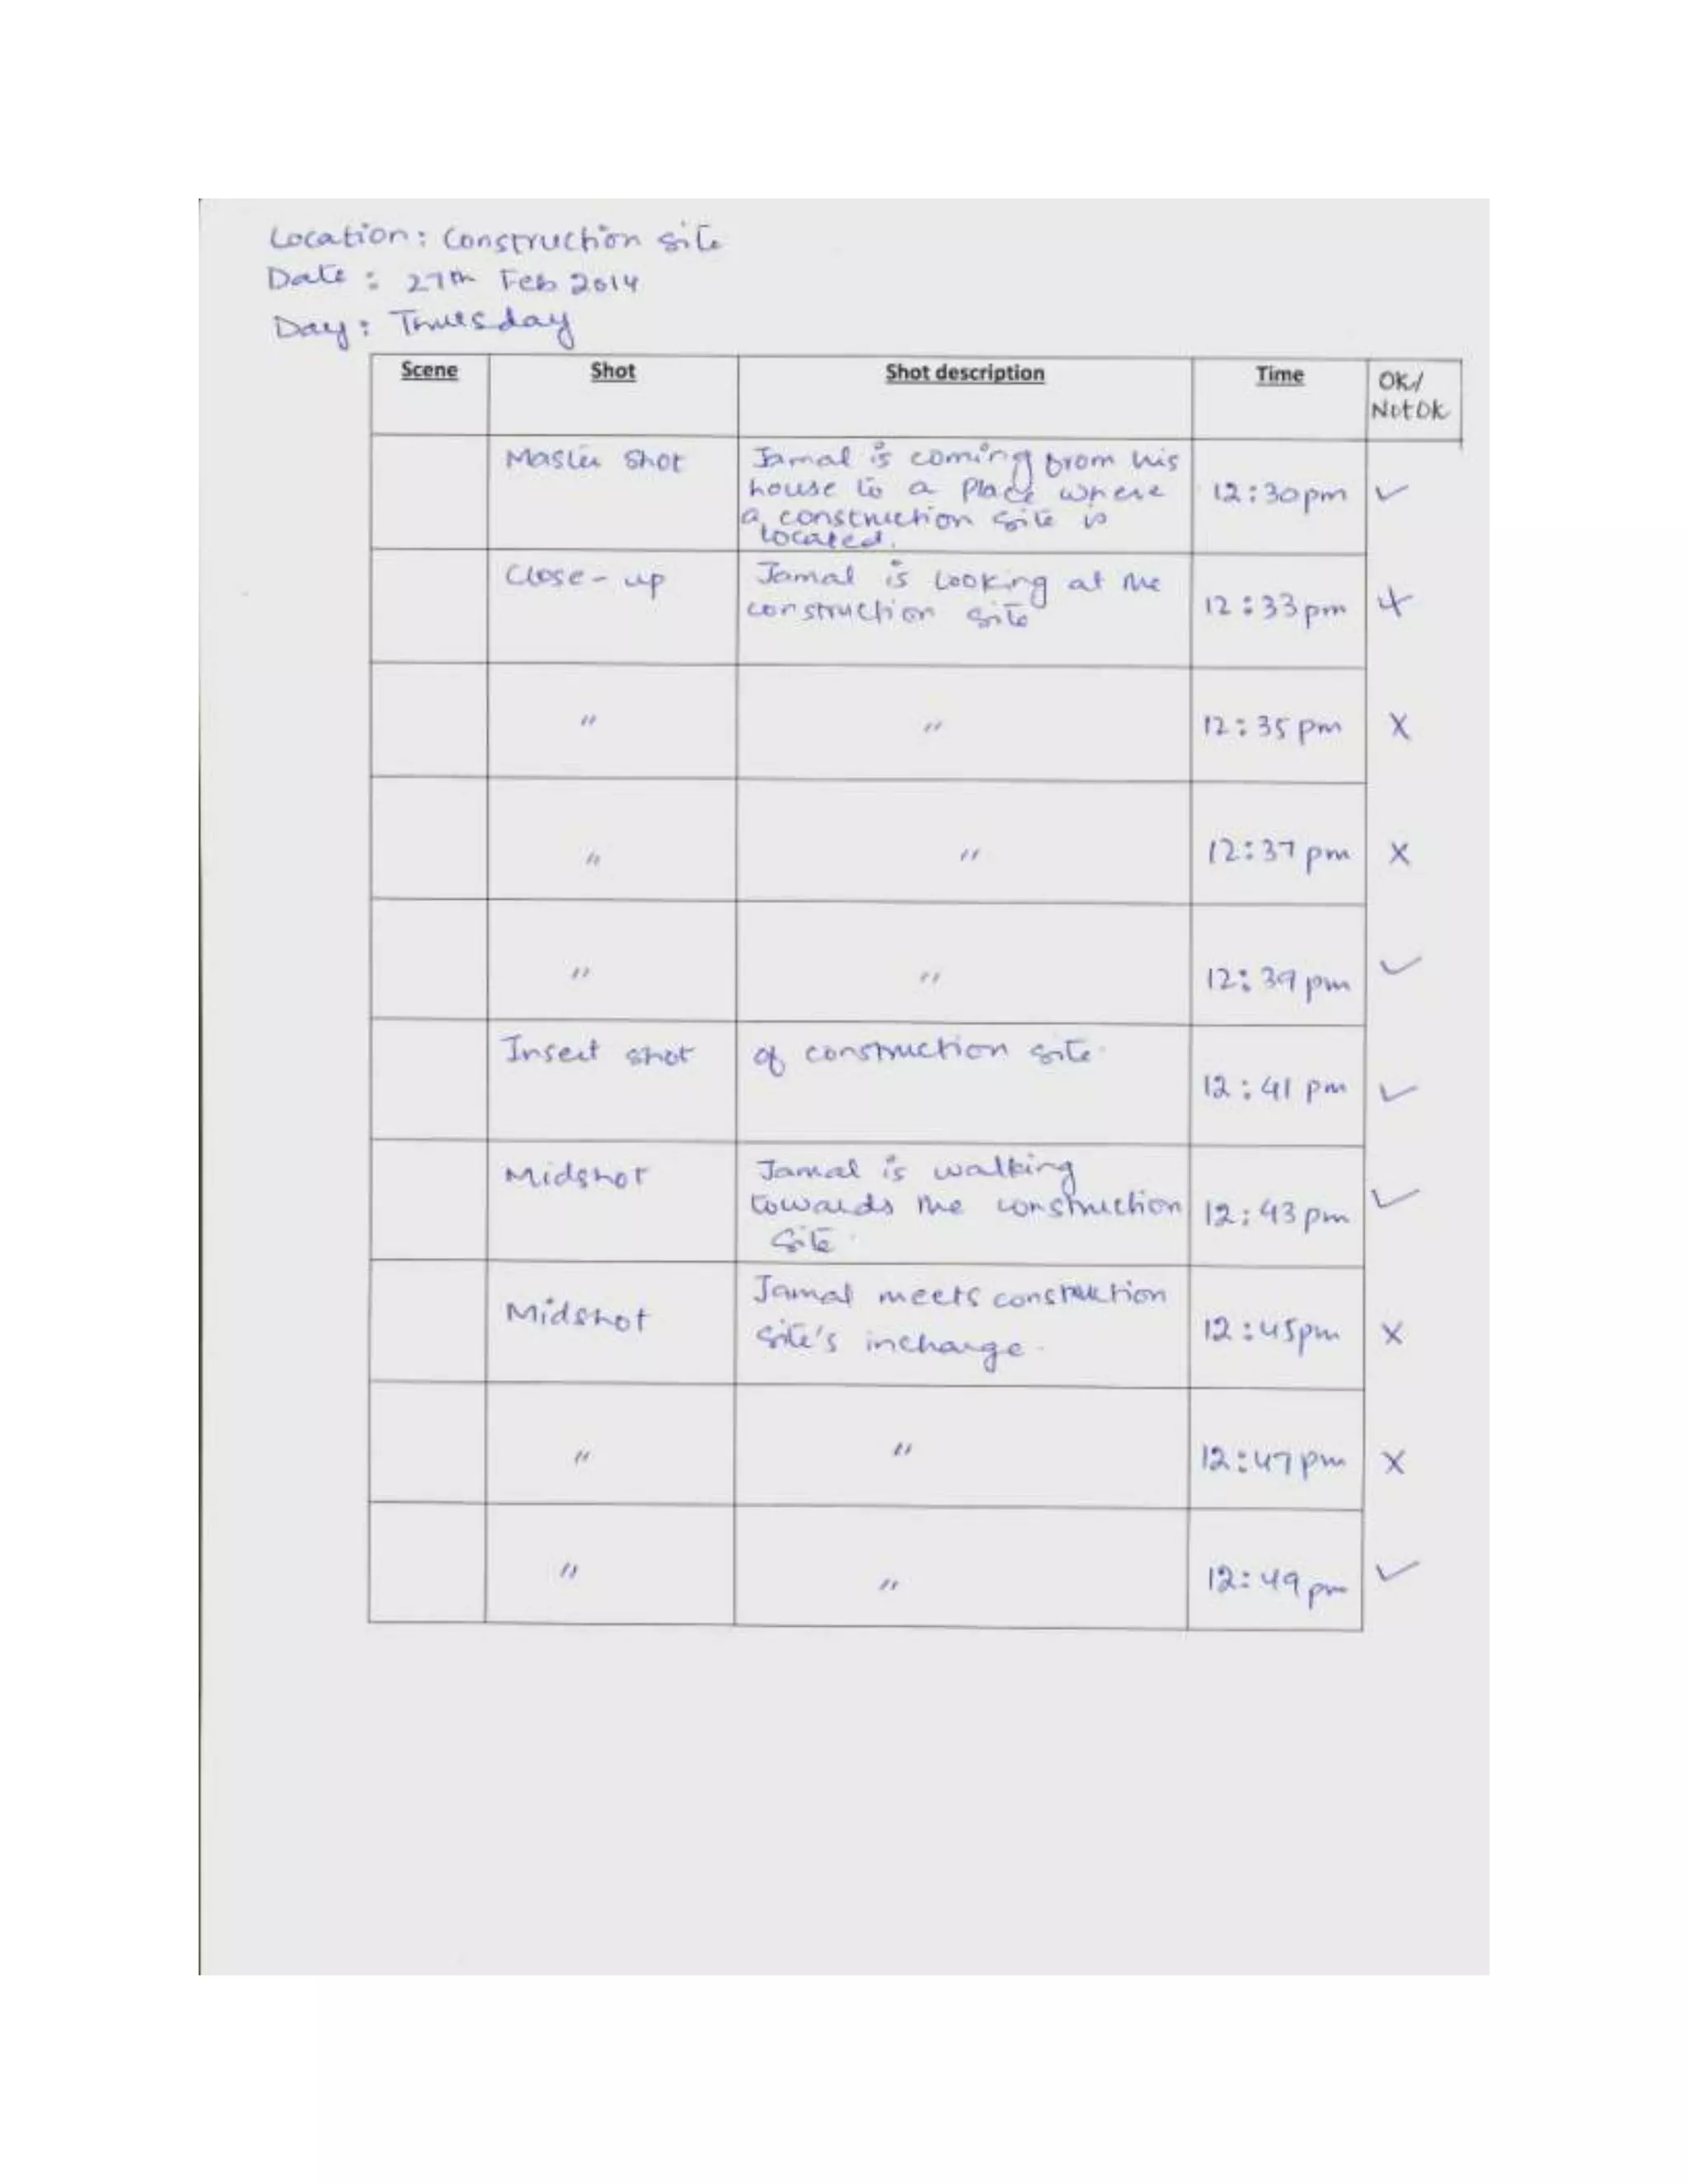 Location: Construction site
Date: 27th Feb 2014
Day: Thursday
Scene Shot Shot description Time OK/
Not Ok
Master shot Jamal is coming from his
house to a place where 12:30pm ✓
a construction site is
located.
Close-up Jamal is looking at the
construction site 12:33pm X
" " 12:35 pm X
" " 12:37 pm X
" " 12:39 pm ✓
Insert shot of construction site.
12:41 pm ✓
Midshot Jamal is walking
towards the construction 12:43 pm ✓
site.
Midshot Jamal meets construction
site's incharge. 12:45pm X
" " 12:47pm X
" " 12:49 pm ✓